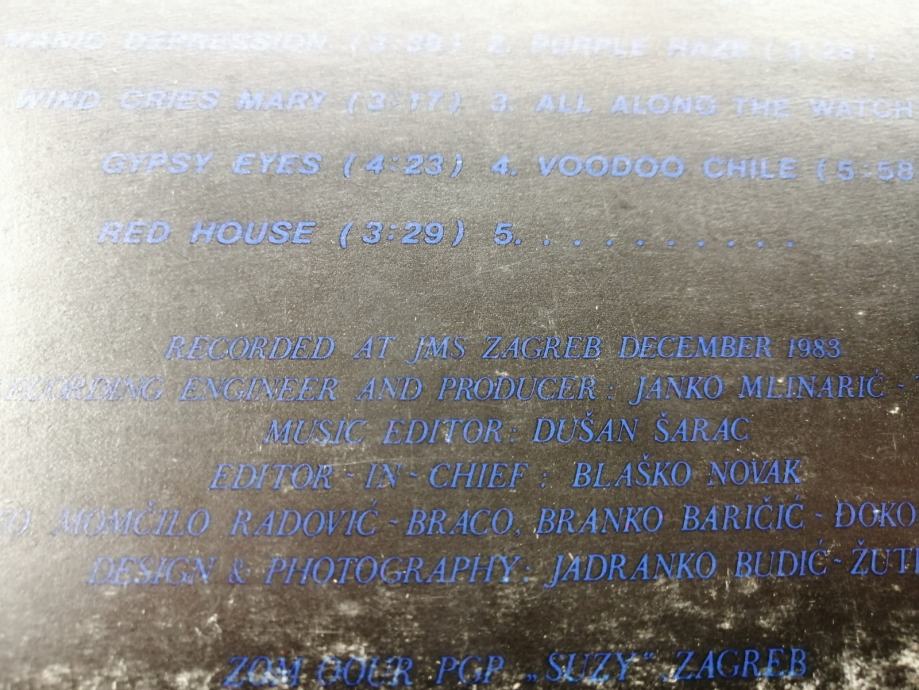 MANIC DEPRESSION (3:39) 2. PURPLE HAZE (3:28)
WIND CRIES MARY (3:17) 3. ALL ALONG THE WATCH
GYPSY EYES (4:23) 4. VOODOO CHILE (5:58
RED HOUSE (3:29) 5. . . . . . . . . . .
RECORDED AT JMS ZAGREB DECEMBER 1983
ECORDING ENGINEER AND PRODUCER: JANKO MLINARIĆ-
MUSIC EDITOR: DUŠAN ŠARAC
EDITOR-IN-CHIEF: BLAŠKO NOVAK
TO MOMČILO RADOVIĆ-BRACO, BRANKO BARIČIĆ-ĐOKO
DESIGN & PHOTOGRAPHY: JADRANKO BUDIĆ-ŽUTI
ZOM OOUR PGP „SUZY" ZAGREB